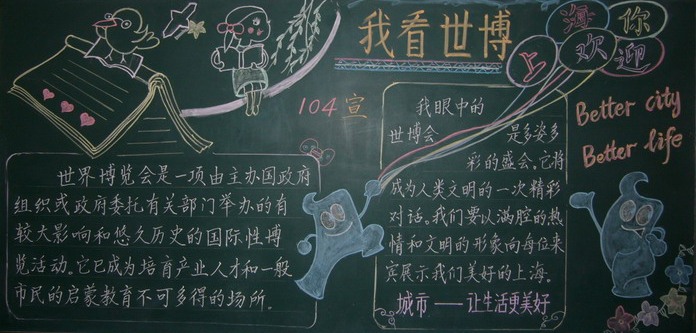 我看世博
上海欢迎你
104宣
世界博览会是一项由主办国政府
组织或政府委托有关部门举办的有
较大影响和悠久历史的国际性博
览活动。它已成为培育产业人才和一般
市民的启蒙教育不可多得的场所。
我眼中的
世博会 是多姿多
彩的盛会,它将
成为人类文明的一次精彩
对话。我们要以满腔的热
情和文明的形象向每位来
宾展示我们美好的上海。
城市——让生活更美好
Better city
Better life